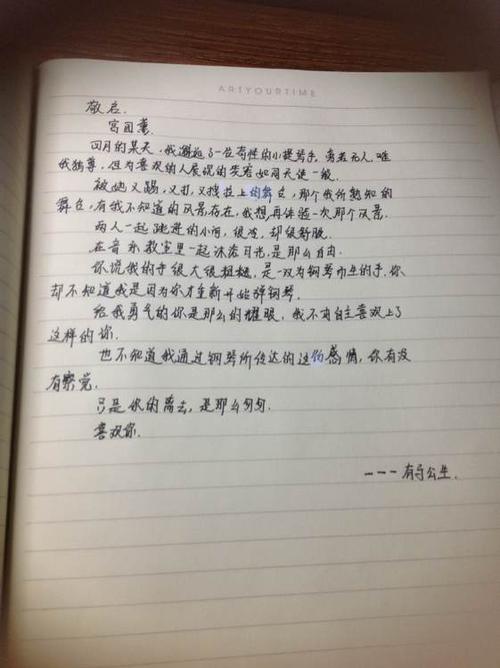 ARTYOURTIME
敬启.
宫园薰.
四月的某天,我邂逅了一位奇怪的小提琴手,旁若无人,唯
我独尊,但为喜欢的人展现的笑容如同天使一般.
被她又踢,又打,又拽拉上的舞台,那个我所熟知的
舞台,有我不知道的风景存在,我想再体验一次那个风景.
两人一起跳进的小河,很冷,却很舒服.
在音乐教室里一起沐浴月光,是那么自由.
你说我的手很大很粗糙,是一双为钢琴而生的手.你
却不知道我是因为你才重新开始弹钢琴.
给我勇气的你是那么的耀眼,我不由自主喜欢上了
这样的你.
也不知道我通过钢琴所传达的这份感情,你有没
有察觉.
只是你的离去,是那么匆匆.
喜欢你.
---有马公生.